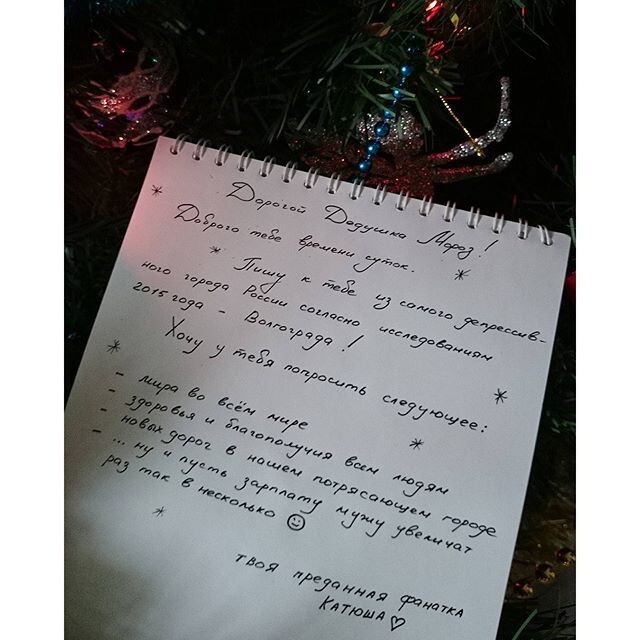 Дорогой Дедушка Мороз!
Доброго тебе времени суток.
Пишу к тебе из самого депрессив-
ного города России согласно исследованиям
2015 года - Волгограда!
Хочу у тебя попросить следующее:
- мира во всём мире
- здоровья и благополучия всем людям
- новых дорог в нашем потрясающем городе
- ... ну и пусть зарплату мужу увеличат
раз так в несколько ☺
твоя преданная фанатка
Катюша ♡